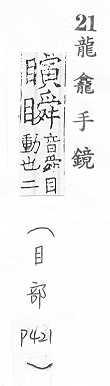 21龍龕手鏡
瞚瞬音舜目動也二
(目部 P421)